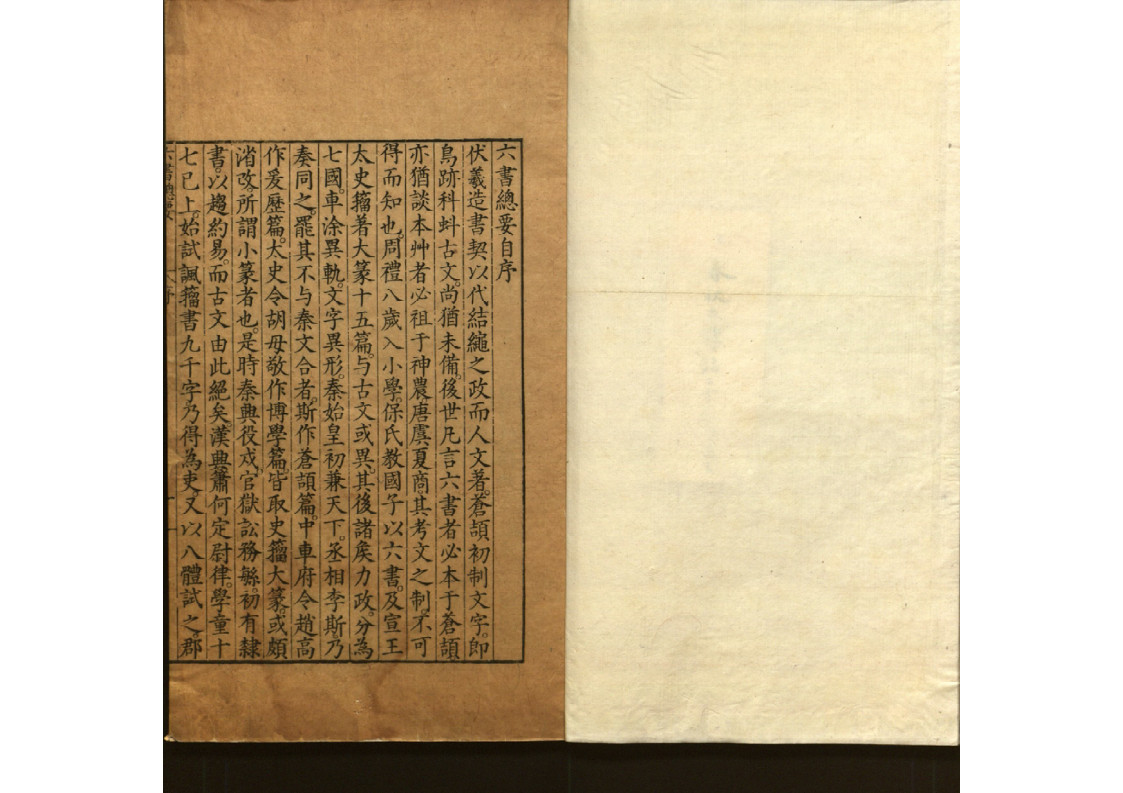 六書總要自序
伏羲造書契以代結繩之政而人文著。蒼頡初制文字。即
鳥跡科蚪古文。尚猶未備。後世凡言六書者必本于蒼頡
亦猶談本艸者必祖于神農唐虞夏商。其考文之制。不可
得而知也。周禮八歲入小學。保氏教國子以六書。及宣王
太史籀著大篆十五篇。与古文或異。其後諸矦力政。分為
七國。車涂異軌。文字異形。秦始皇初兼天下。丞相李斯乃
奏同之。罷其不与秦文合者。斯作蒼頡篇。中車府令趙高
作爰歷篇。太史令胡毋敬作博學篇。皆取史籀大篆。或頗
渻改。所謂小篆者也。是時秦興役戍。官獄訟務緐。初有隸
書。以趨約易。而古文由此絕矣。漢興蕭何定尉律。學童十
七已上。始試諷籀書九千字乃得為吏。又以八體試之。郡